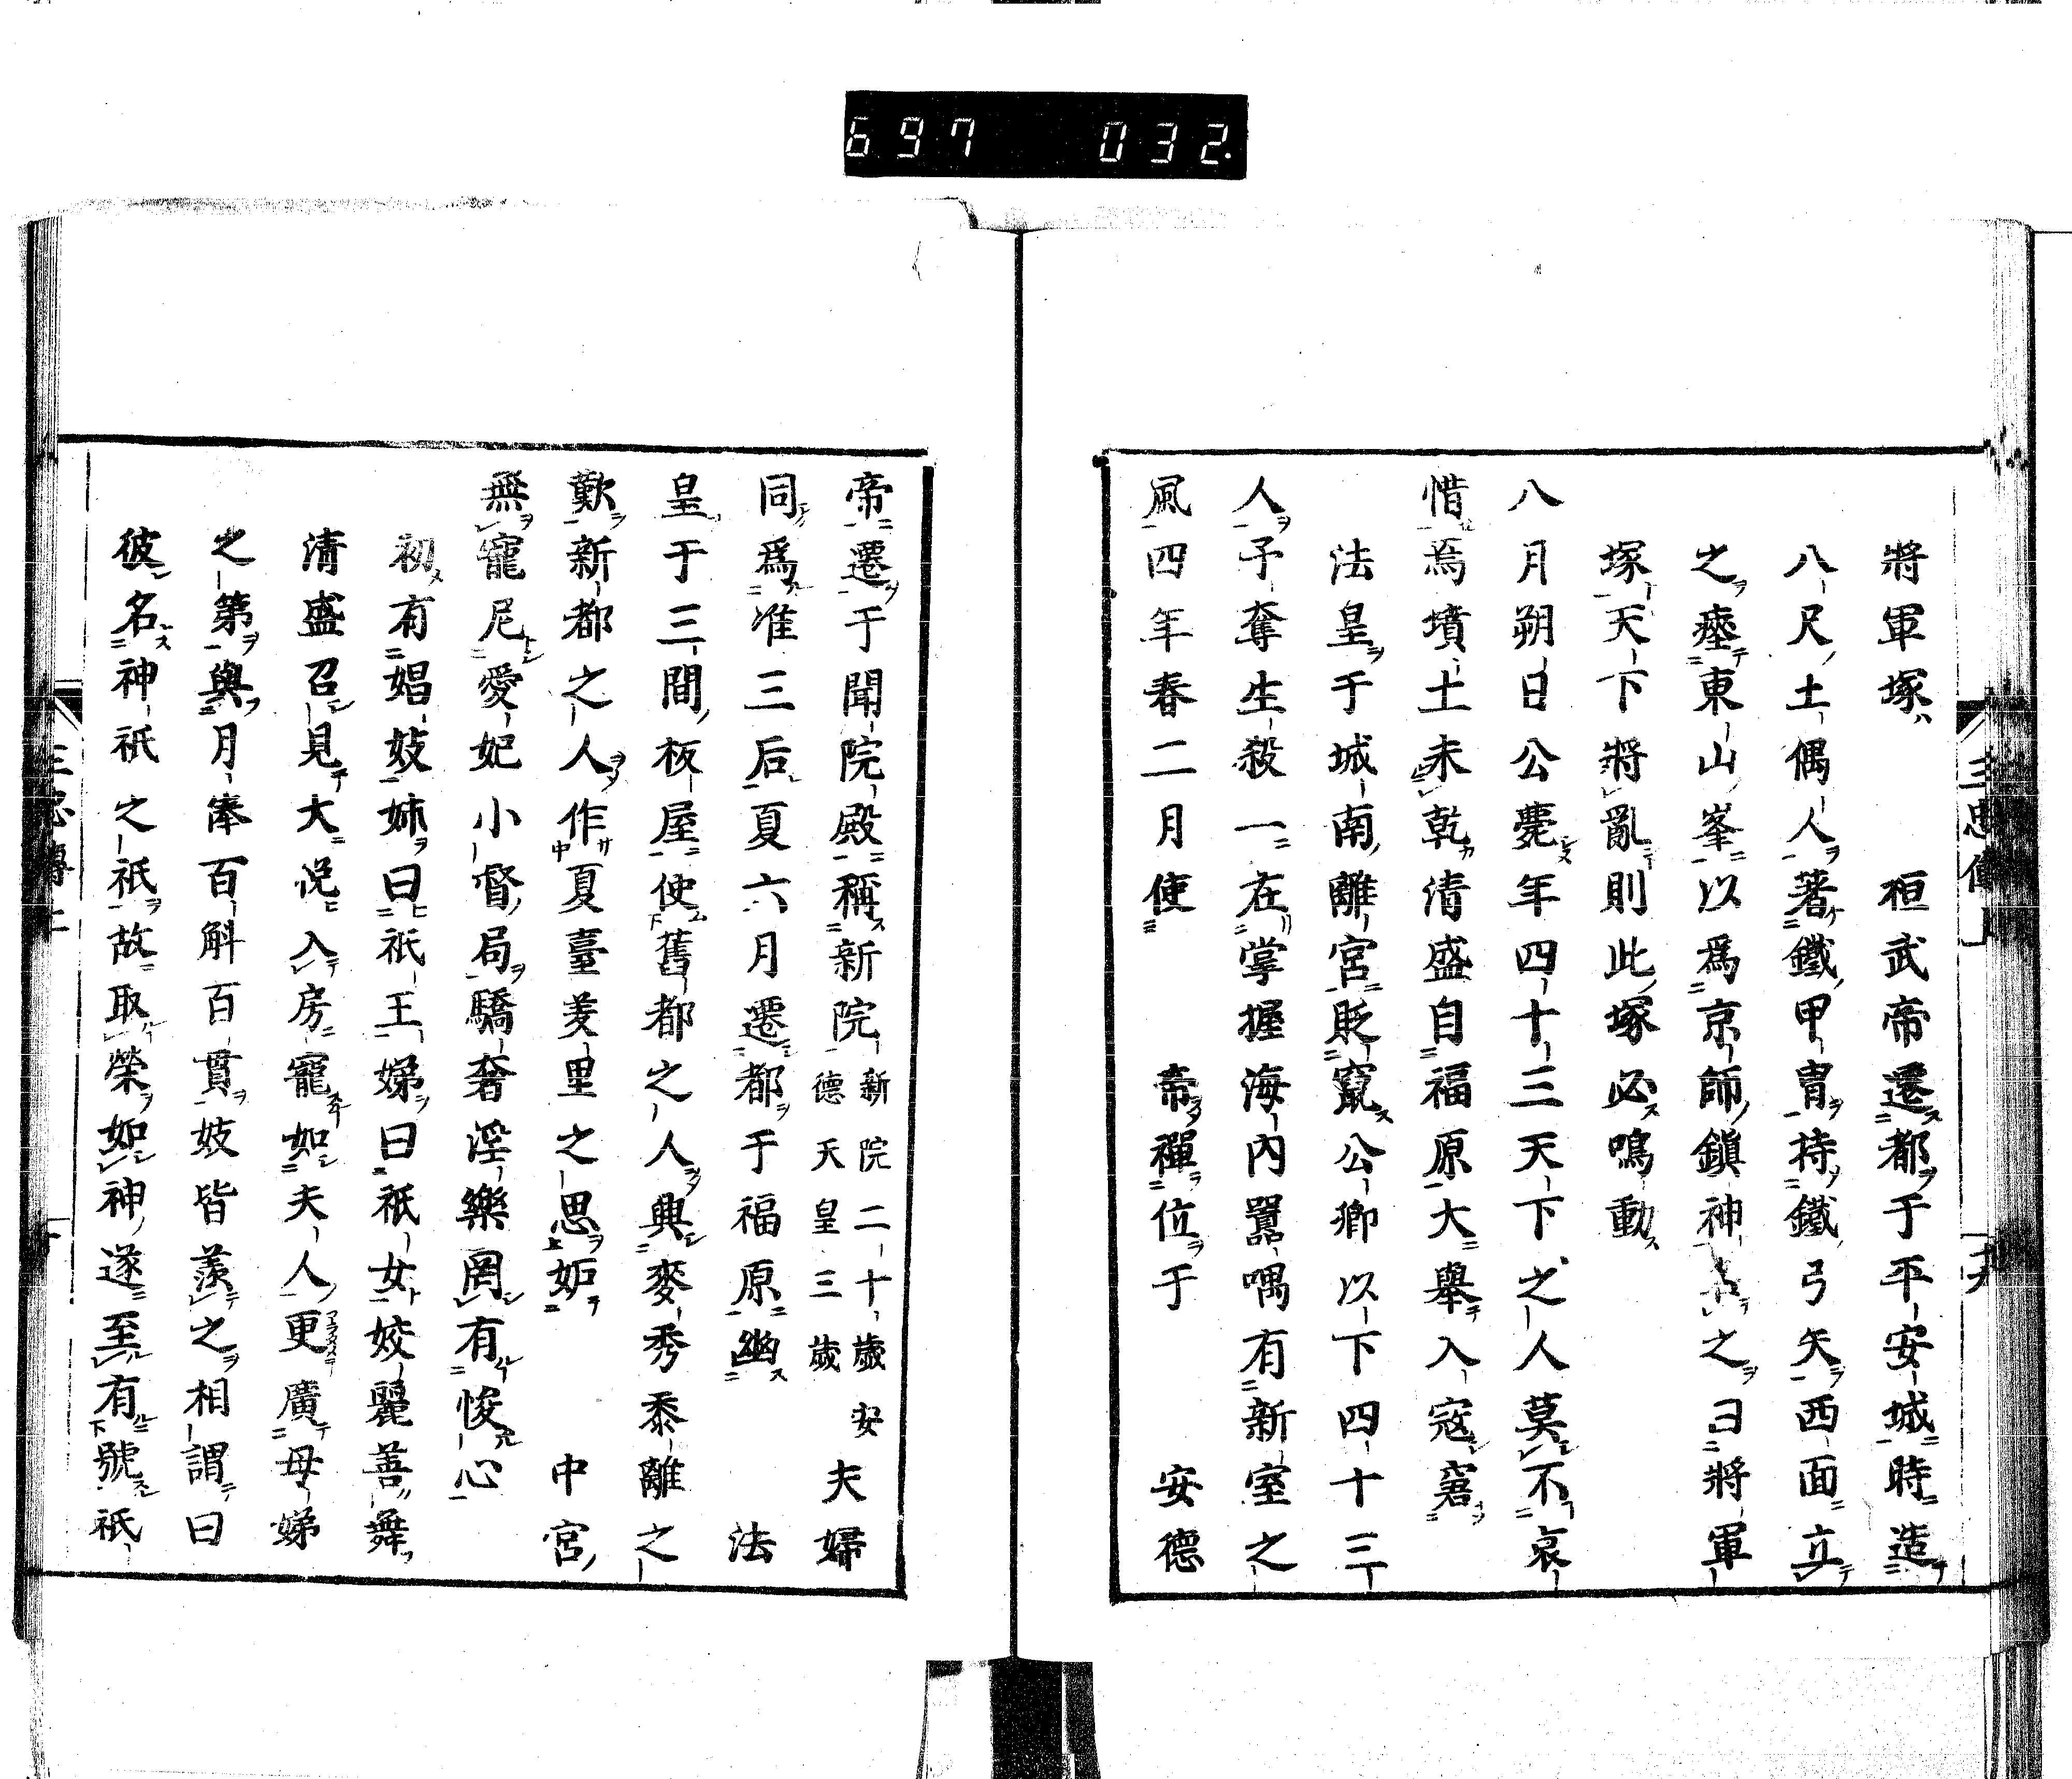 697 032.
將軍塚 桓武帝遷都于平安城時造
八尺土偶人著鐵甲冑持鐵弓矢西面立
之瘞東山峯以爲京師鎭神之曰將軍
塚天下將亂則此塚必鳴動
八月朔日公薨年四十三天下之人莫不哀
惜焉墳土未乾清盛自福原大擧入寇窘
法皇于城南離宮貶竄公卿以下四十三
人予奪生殺一在掌握海內囂喁有新室之
風四年春二月使 帝禪位于 安德
帝遷于閑院殿稱新院 新院二十歲安德天皇三歲 夫婦
同爲准三后夏六月遷都于福原幽 法
皇于三間板屋使舊都之人興麥秀黍離之
歎新都之人作夏臺羑里之思妬 中宮
無寵尼愛妃小督局驕奢淫樂罔有悛心
初有娼妓姊曰祇王娣曰祇女姣麗善舞
清盛召見大悅入房寵如夫人更廣母娣
之第與月俸百斛百貫妓皆羨之相謂曰
彼名神祇之祇故取榮如神遂至有號祇
三忠傳上